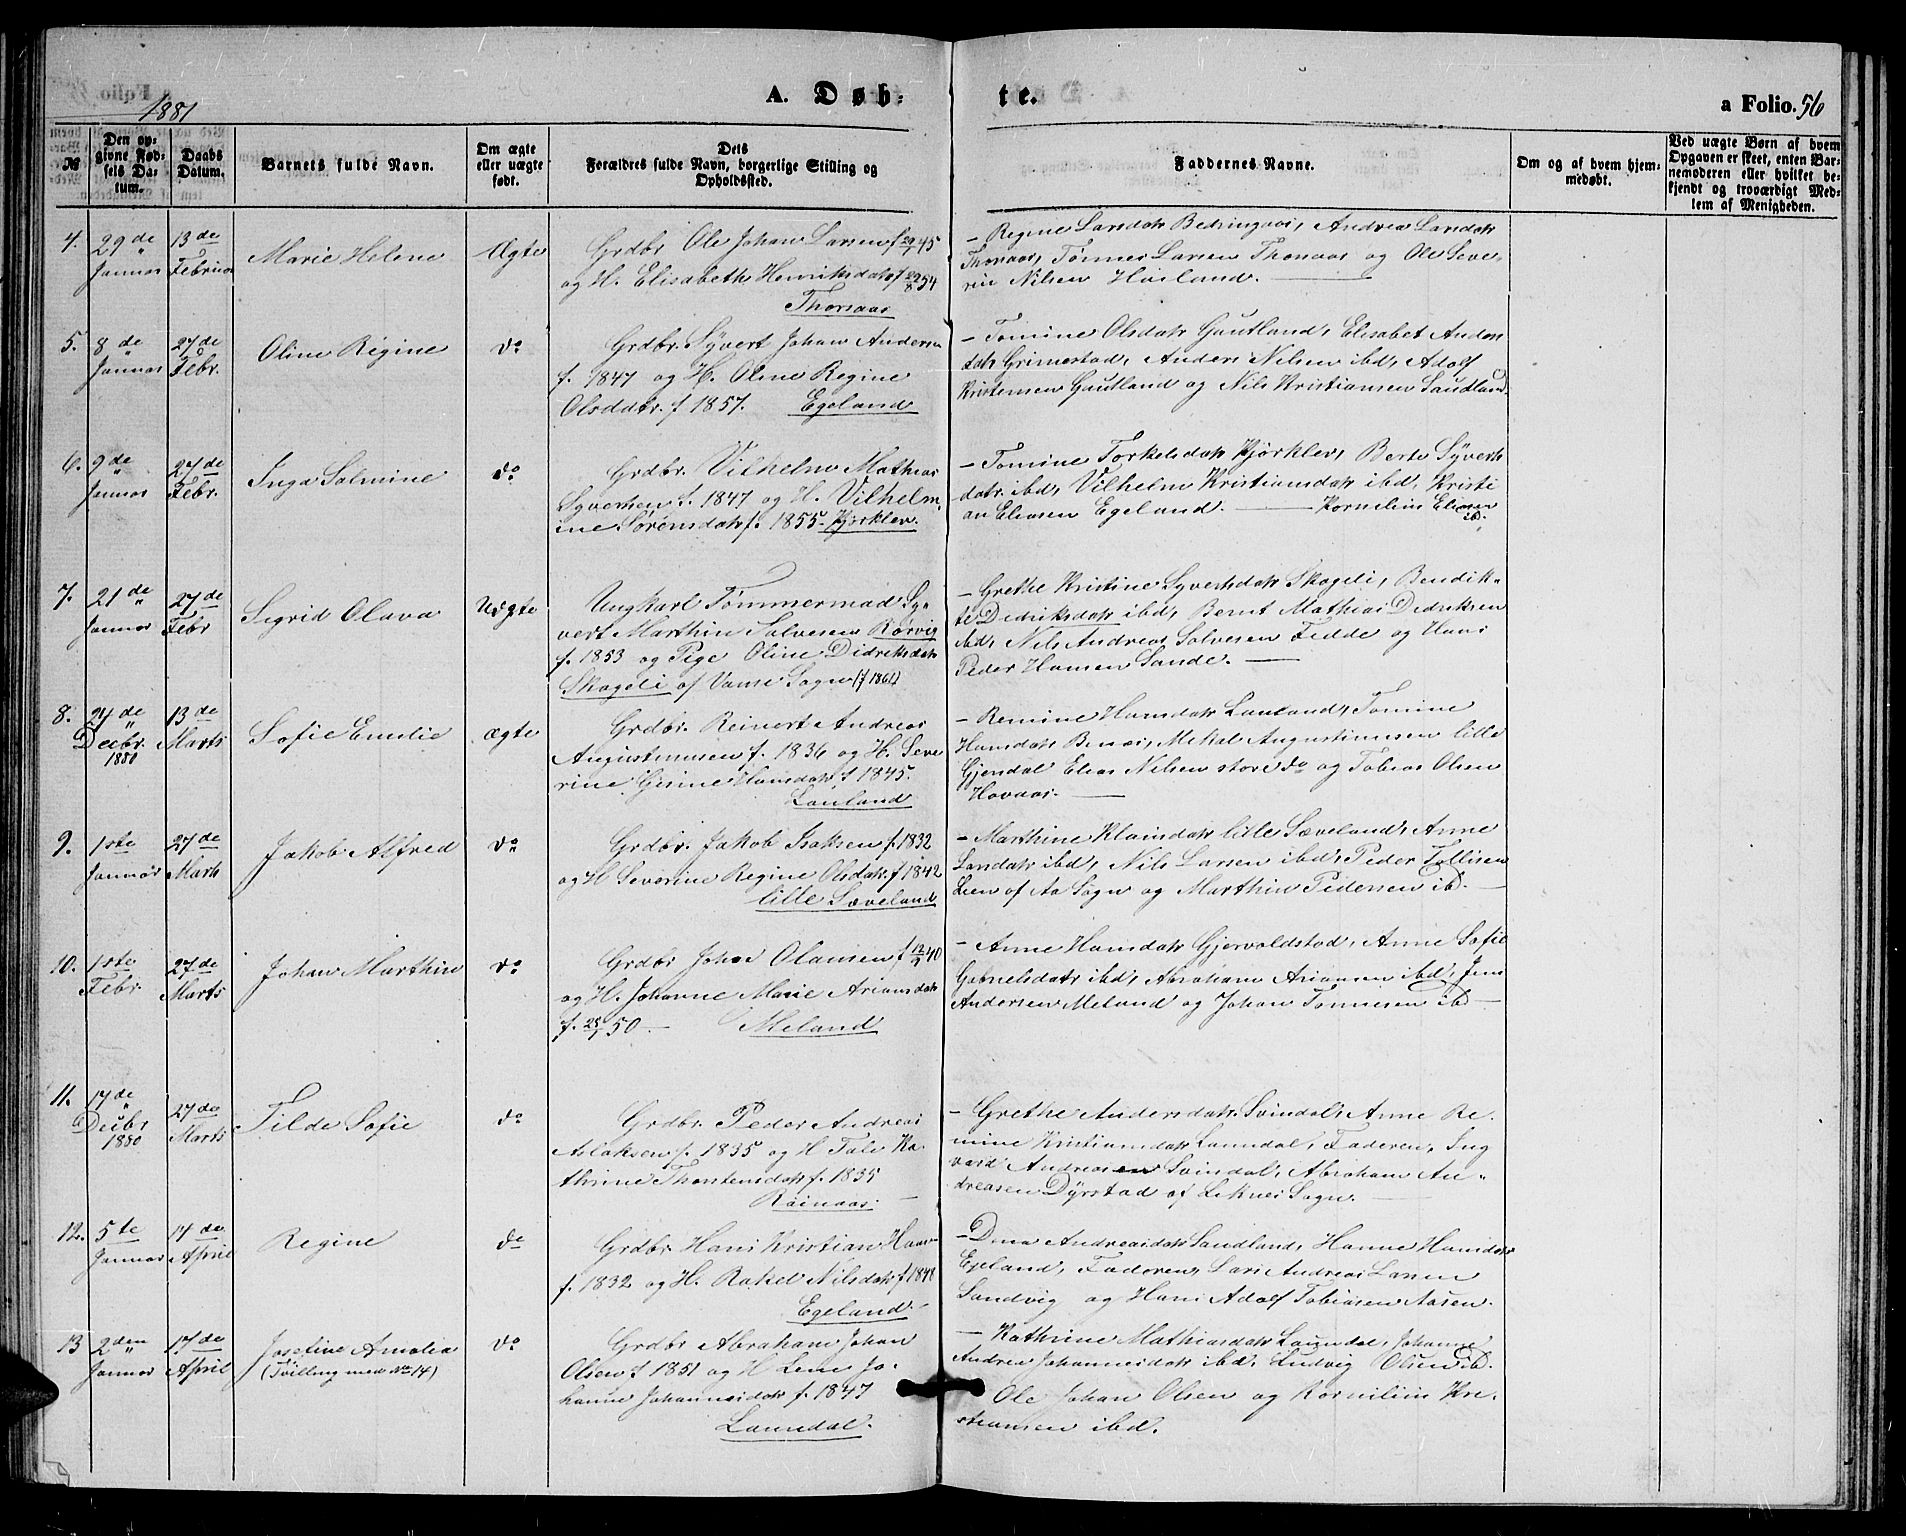 1881
A. Døb-
te.
a Folio. 56
№
Den op-
givne Fød-
sels Da-
tum.
Daabs
Datum.
Barnets fulde Navn.
Om ægte
eller uægte
født.
Dets
Forældres fulde Navn, borgerlige Stilling og
Opholdssted.
Faddernes Navne.
Om og af hvem hjem-
medøbt.
Ved uægte Børn af hvem
Opgaven er skeet, enten Bar-
nemoderen eller hvilket be-
kjendt og troværdigt Med-
lem af Menigheden.
4. 29de Januar
13de Februar
Marie Helene
Ægte
Grdbr Ole Johan Larsen f 45
og H. Elisabeth Henriksdatr f 54
Thorsaas
- Regine Larsdatr Andrea Larsdatr
Thorsaas, Tønnes Larsen Thorsaas og Ole Seve-
rin Nilsen Høiland.
5. 8de Januar
27de Febr.
Oline Regine
do
Grdbr. Syvert Johan Andersen
f. 1847 og H. Oline Regine
Olsddtr. f 1857. Egeland
- Tomine Olsdatr Gautland, Elisabet Anders
datr Grimestad, Anders Nilsen ibd, Adolf
Kristensen Gautland og Nils Kristiansen Saudland.
6. 9de Januar
27de Febr.
Inga Salmine
do
Grdbr. Vilhelm Mathias
Syvertsen f. 1847 og H. Vilhelm-
ine Sørensdatr f. 1855. Hjorklev.
- Tomine Torkelsdatr Hjorklev, Berte Syverts
datr. ibd, Vilhelm Kristiansdatr ibd, Kristi
an Eliasen Egeland. Kornelius Eliasen
ibd.
7. 21de Januar
27de Febr
Sigrid Olava
Uægte
Ungkarl Tømmermand Sy-
vert Marthin Salvesen Rørvig
f. 1853 og Pige Oline Didriksdatr
Skogeli af Vanse Sogn (f 1861)
- Grethe Kristine Syvertsdatr Skogeli, Bendik-
te Didriksdatr ibd, Bernt Mathias Didriksen
ibd, Nils Andreas Salvesen Fedde og Hans
Peder Hansen Sande.
8. 24de Decbr. 1880
13de Marts
Sofie Emilie
ægte
Grdbr. Reinert Andreas
Augustinusen f. 1836 og H. Seve
rine Gesine Hansdatr f 1845.
Lauland
- Remine Hansdatr Lauland, Tomine
Hansdatr Mikal Augustinusen lille
Gjendal Elias Nilsen store do og Tobias Olsen
Hovaas.
9. 1ste Januar
27de Marts
Jakob Alfred
do
Grdbr. Jakob Isaksen f. 1832
og H Severine Regine Olsdatr. f 1842
lille Sæveland
- Marthine Klausdatr lille Sæveland, Anne
Larsdatr ibd, Nils Larsen ibd, Peder Tollisen
Lien af Aa Sogn og Marthin Pedersen ibd.
10. 1ste Febr.
27de Marts
Johan Marthin
do
Grdbr Johan Olausen f 12/2 40
og H. Johanne Marie Ariansdatr
f. 25/7 50 - Meland
- Anne Hansdatr Gjervoldstad, Anne Sofie
Gabrielsdatr ibd, Abraham Ariansen ibd, Jens
Andersen Meland og Johan Tønnesen ibd
11. 17de Decbr 1880
27de Marts
Tilde Sofie
do
Grdbr. Peder Andreas
Aslaksen f. 1835 og H Tale Ka-
thrine Thorstensdatr f. 1835
Røinaas.
- Grethe Andersdatr Svindal, Anne Re-
mine Kristiansdatr Laundal, Faderen, Ing
vard Andreasen Svindal, Abraham An-
dreasen Dyrstad af Liknes Sogn.
12. 5te Januar
14de April
Regine
do
Grdbr. Hans Kristian Hansen
f. 1832 og H. Rakel Nilsdatr f 1848
Egeland.
- Dina Andreasdatr Saudland, Hanne Hansdatr
Egeland, Faderen, Lars Andreas Larsen
Sandvig og Hans Adolf Tobiasen Aasen.
13 2den Januar
17de April
Josefine Amalia
(Tvilling med No 14)
do
Grdbr Abraham Johan
Olsen f 1851 og H Lene Jo-
hanne Johannesdatr f. 1847
Launadal.
- Kathrine Mathiasdatr Launadal, Johanne
Andrea Johannesdatr ibd, Ludvig Olsen ibd.
Ole Johan Olsen og Kornelius Kri-
stiansen ibd.